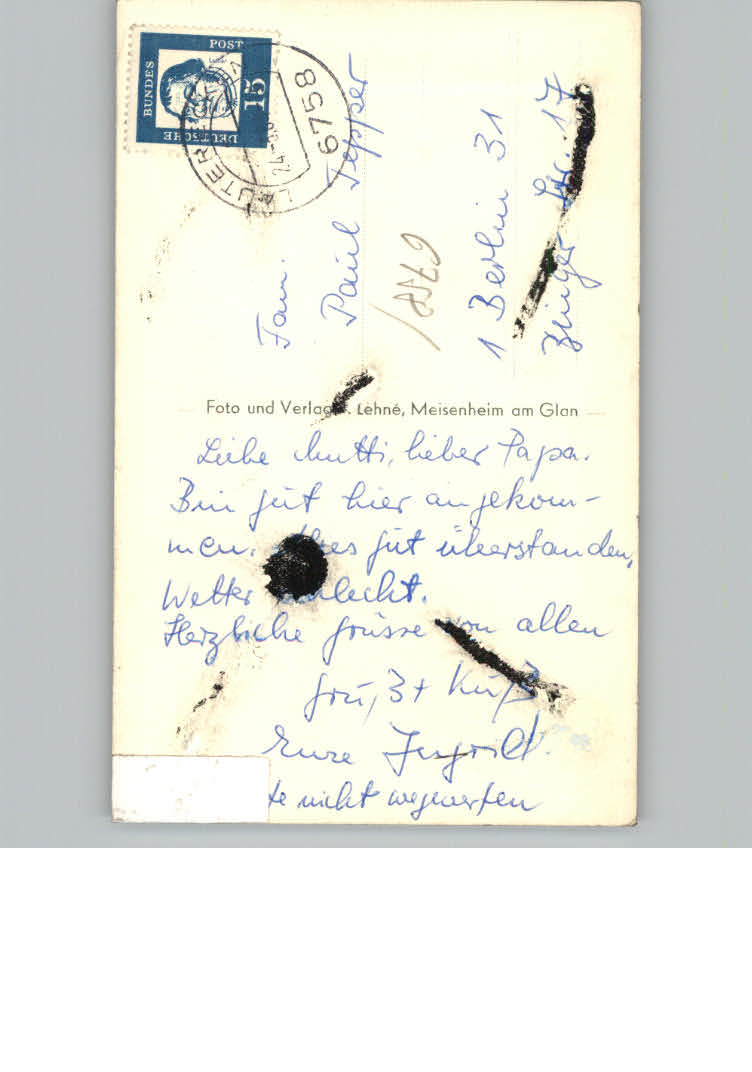 DEUTSCHE
BUNDES
POST
15
6758
LAUTERE
24.
Fam.
Paul Tepper
1 Berlin 31
Str. 17
6758/
Foto und Verlag Lehné, Meisenheim am Glan
Liebe Mutti, lieber Papa.
Bin gut hier angekom-
men. Alles gut überstanden,
Wetter schlecht.
Herzliche Grüsse von allen
Gruß + Kuß
Eure Ingrid.
te nicht wegwerfen